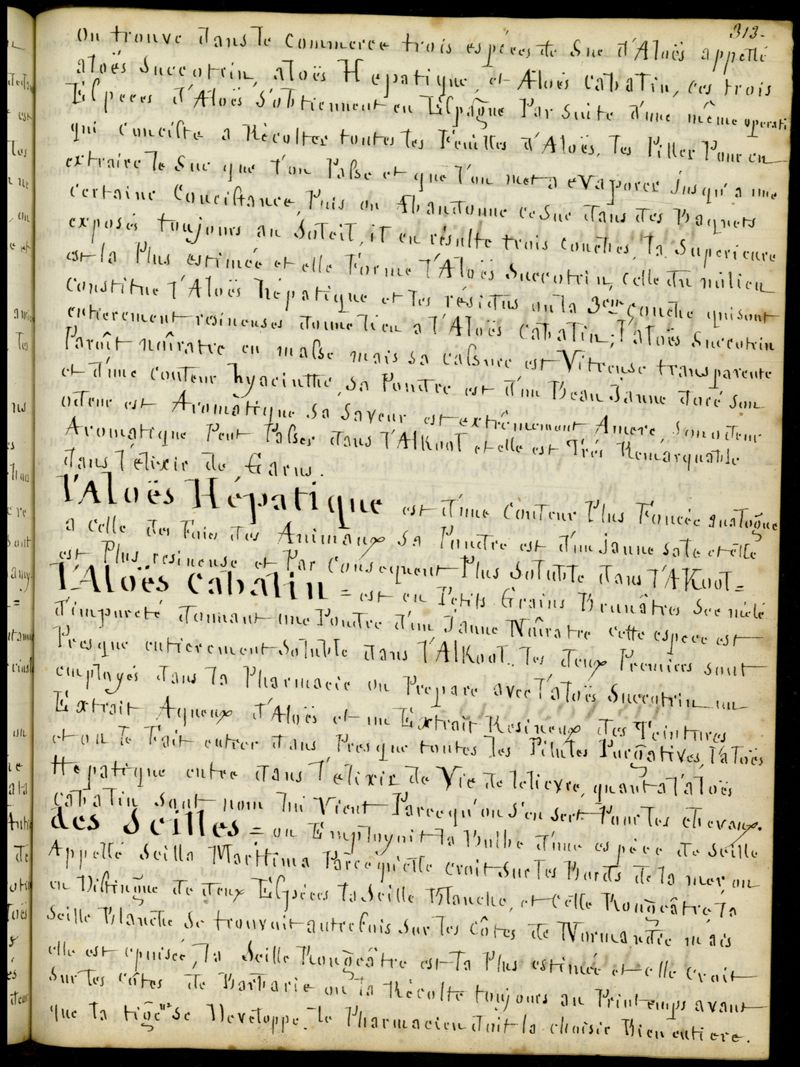 313.
On trouve dans le Commerce trois espéces de Suc d'Aloës appellé
aloës Succotrin, aloës Hepatique, et Aloës Cabalin, ces trois
Especes d'Aloës S'obtiennent en Espagne Par Suite d'une même operati
qui Conciste a Récolter toutes les Feuilles d'Aloës, les Piller Pour en
extraire le Suc que l'on Passe et que l'on met a evaporer Jusqu'a une
Certaine Concistance, Puis on Abandonne ce Suc dans des Baquets
exposés toujours au Soleil, il en résulte trois Couches, la Superieure
est la Plus estimée et elle Forme l'Aloës Succotrin, celle du milieu
Constitue l'Aloës hépatique et les résidus ou la 3eme Couche qui sont
entierement resineuses donne lieu a l'Aloës Cabalin; l'aloës Succotrin
Paroît noîratre en masse mais sa Cassure est Vitreuse transparente
et d'une Couleur hyacinthe, Sa Poudre est d'un Beau Janne doré Son
odeur est Aromatique Sa Saveur est extrêmement Amere, Son odeur
Aromatique Peut Passer dans l'Alkool et elle est Trés Remarquable
dans l'elixir de Garus.
l'Aloës Hépatique est d'une Couleur Plus Foncée analogue
a celle des Foie des Animaux Sa Poudre est d'un janne sale et elle
est Plus resineuse et Par Consequent Plus Soluble dans l'Alkool =
l'Aloës Cabalin = est en Petits Grains Brunâtres Sec mélé
d'impureté donnant une Poudre d'un Janne Noîratre cette espece est
Presque entierement Soluble dans l'Alkool. les deux Premiers sont
employés dans la Pharmacie on Prepare avec l'aloës Succotrin un
Extrait Aqueux d'Aloës et un Extrait Resineux des Teintures
et on le Fait entrer dans Presque toutes les Pilules Purgatives, l'aloës
Hepatique entre dans l'elixir de Vie de lelievre, quant a l'aloës
Cabalin Sont nom lui Vient Parcequ'on S'en Sert Pour les chevaux.
des Scilles = on Employoit la Bulbe d'une espéce de Scille
Appellé Scilla Maritima Parcequ'elle croit Sur les Bords de la mer on
en Distingue de deux Espéces la Scille Blanche, et Celle Rougeâtre la
Scille Blanche Se trouvait autrefois Sur les Côtes de Normandie mais
elle est epuisée, la Scille Rougeâtre est la Plus estimée et elle Croit
Sur les côtes de Barbarie on la Récolte toujours au Printemps avant
que la tige Se Developpe. le Pharmacien doit la choisir Bien entiere.